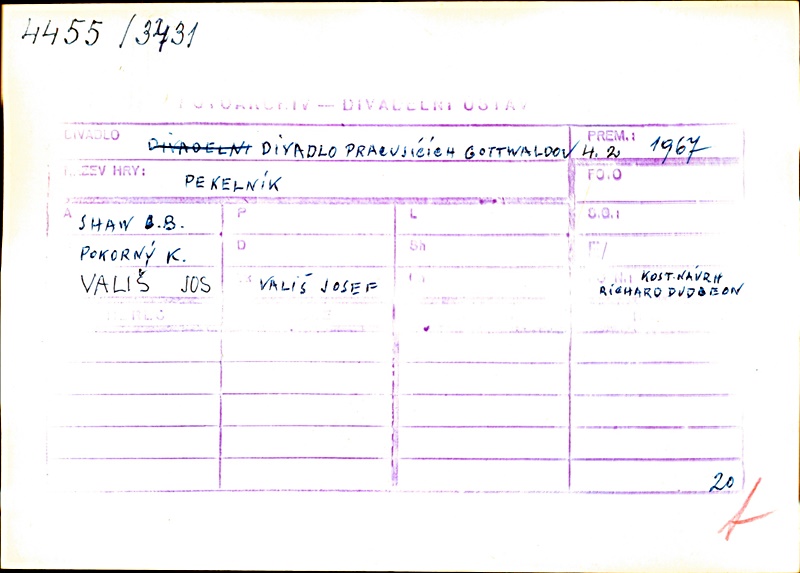 4455 / 3431
FOTOARCHIV — DIVADELNÍ ÚSTAV
DIVADLO DIVADELNI DIVADLO PRACUJÍCÍCH GOTTWALDOV PREM.: 4. 2 1967
NÁZEV HRY: PEKELNÍK FOTO
A SHAW G.B. P L S.G.:
POKORNÝ K. D Sh
VALIŠ JOS VALIŠ JOSEF KOST. NÁVRH
RICHARD DUDGEON
20